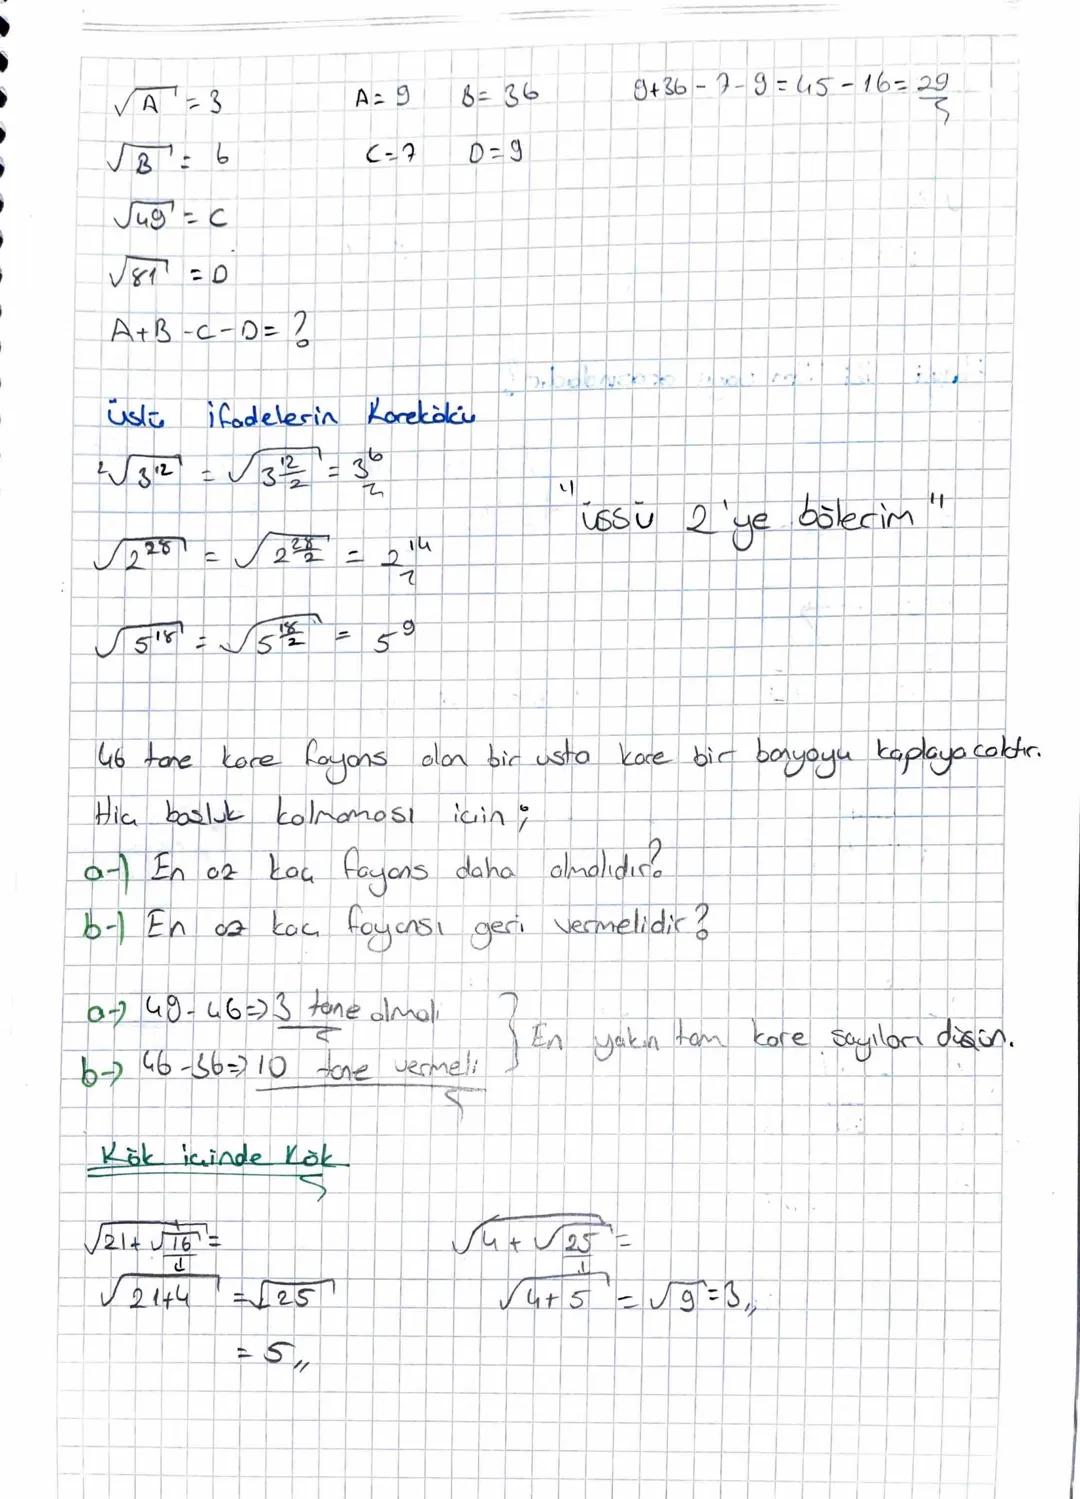 √A = 3 A = 9 B = 36 9+36-7-9 = 45-16 = 29
√B = 6 C=7 D=9
√49 = C
√81 = D
A+B-C-D = ?
üslü ifadelerin Karekökü
²√3^12 = √3^(12/2) = 3^6
"üssü 2'ye bölerim"
√2^28 = √2^(28/2) = 2^14
√5^18 = √5^(18/2) = 5^9
46 tane kare fayans alan bir usta kare bir banyoyu kaplayacaktır.
Hiç boşluk kalmaması için ;
a-) En az kaç fayans daha almalıdır?
b-) En az kaç fayansı geri vermelidir?
a-) 49-46 => 3 tane almalı
En yakın tam kare sayıları düşün.
b-) 46-36 => 10 tane vermeli
Kök içinde Kök
√(21+√16) = √(4+√25) =
√(21+4) = √25 √(4+5) = √9 = 3,,
= 5,,